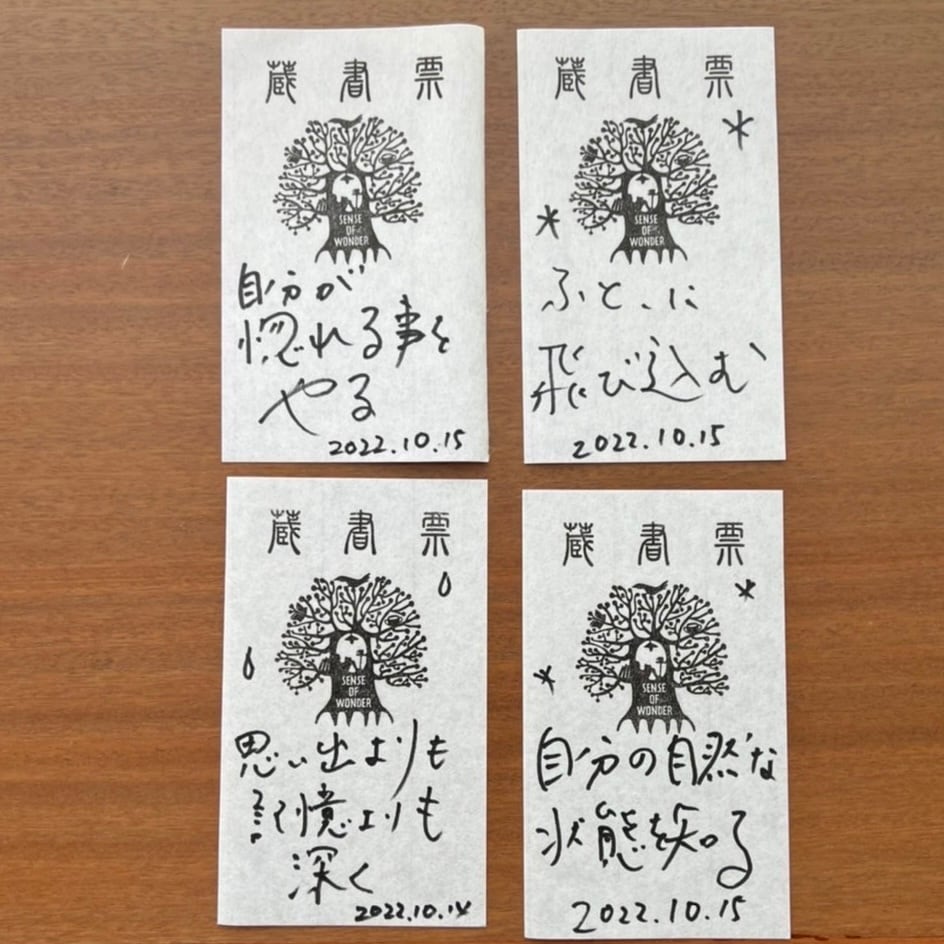 蔵書票
SENSE
OF
WONDER
自分が
惚れる事を
やる
2022.10.15
蔵書票
SENSE
OF
WONDER
ふと、に
飛び込む
2022.10.15
蔵書票
SENSE
OF
WONDER
思い出よりも
記憶よりも
深く
2022.10.14
蔵書票
SENSE
OF
WONDER
自分の自然な
状態を知る
2022.10.15